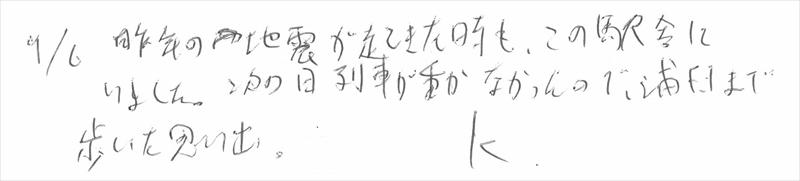 9/6 昨年の地震が起きた時も、この駅舎に
いました。次の日列車が動かなかったので、浦臼まで
歩いた思い出。 K.